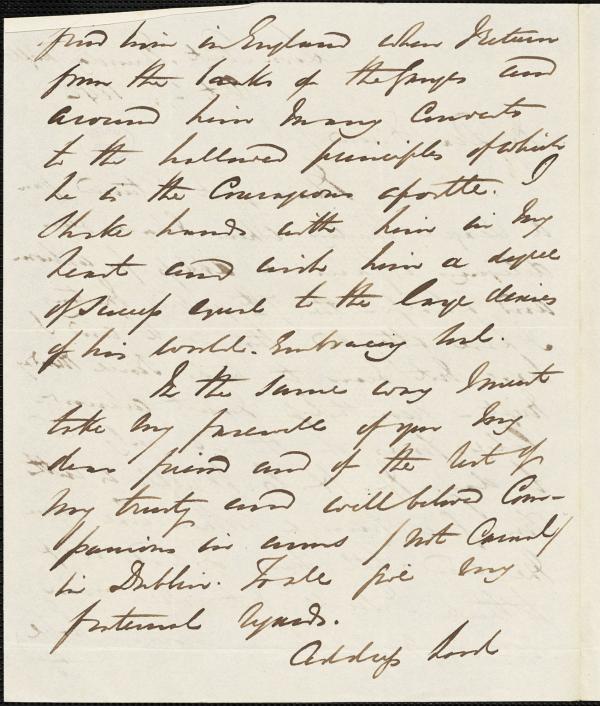 find him in England when I return
from the banks of the Ganges and
around him many converts
to the hallowed principles of which
he is the courageous apostle. I
Shake hands with him in my
heart and wish him a degree
of Success equal to the large desires
of his world-Embracing soul.
In the same way I must
take my farewell of you my
dear friend and of the rest of
my trusty and well beloved Com-
panions in arms (not Carnal)
in Dublin. To all give my
fraternal regards.
Address